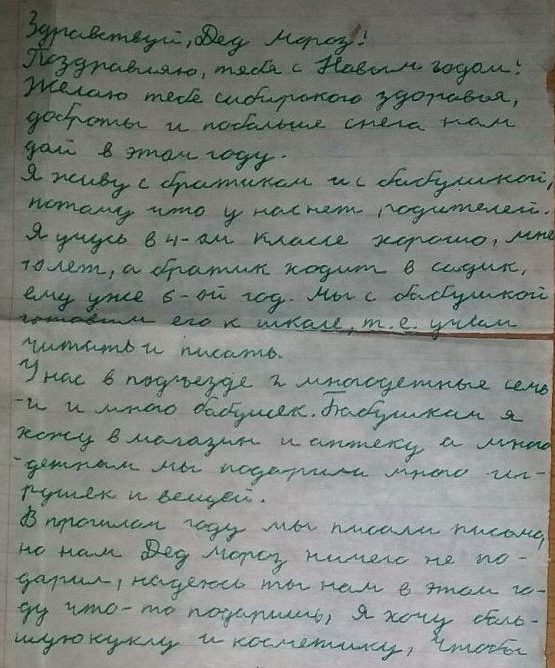 Здравствуй, Дед Мороз!
Поздравляю, тебя с Новым годом!
Желаю тебе сибирского здоровья,
доброты и побольше снега нам
дай в этом году.
Я живу с братиком и с бабушкой,
потому что у нас нет родителей.
Я учусь в 4-ом классе хорошо, мне
10 лет, а братик ходит в садик,
ему уже 6-ой год. Мы с бабушкой
готовим его к школе, т.е. учим
читать и писать.
У нас в подъезде 2 многодетные семь-
-и и много бабушек. Бабушкам я
хожу в магазин и аптеку а много
-детным мы подарили много иг-
рушек и вещей.
В прошлом году мы писали письмо,
но нам Дед Мороз ничего не по-
дарил, надеюсь ты нам в этом го-
ду что-то подаришь, Я хочу боль-
шую куклу и косметику, чтобы